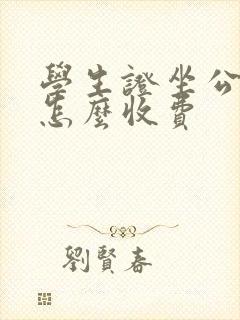 學生證坐公
怎麼收費
劉賢春